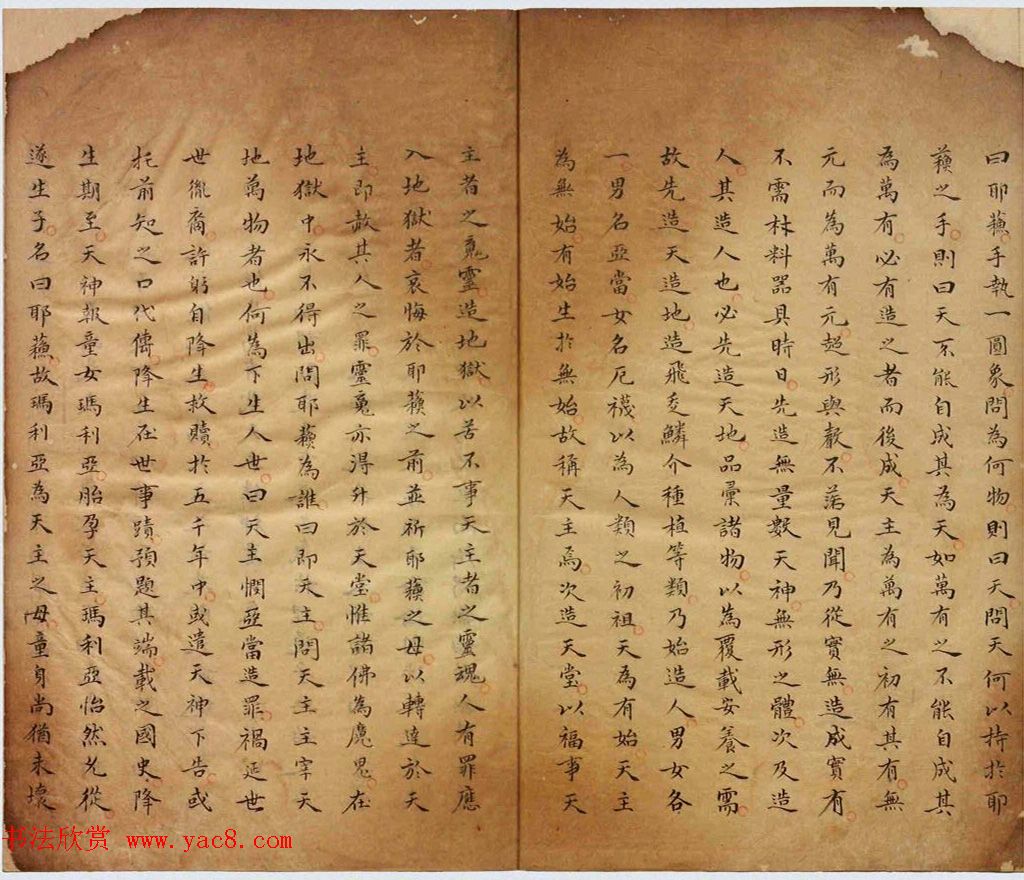 曰耶蘓手執一圓象問為何物則曰天問天何以持扵耶
蘓之手則曰天不能自成其為天如萬有之不能自成其
為萬有必有造之者而後成天主為萬有之初有其有無
元而為萬有元超形與聲不落見聞乃從實無造成實有
不需材料器具時日先造無量數天神無形之體次及造
人其造人也必先造天地品彙諸物以為覆載安養之需
故先造天造地造飛走鱗介種植等類乃始造人男女各
一男名亞當女名厄襪以為人類之初祖天為有始天主
為無始有始生扵無始故稱天主焉次造天堂以福事天
主者之䰟靈造地獄以苦不事天主者之靈魂人有罪應
入地獄者哀悔於耶蘓之前並祈耶蘓之母以轉達於天
主即赦其人之罪靈䰟亦得升於天堂惟諸佛為魔鬼在
地獄中永不得出問耶蘓為誰曰即天主問天主主宰天
地萬物者也何為下生人世曰天主憫亞當造罪禍延世
世胤裔許躬自降生救贖扵五千年中或遣天神下告或
托前知之口代傳降生在世事蹟預題其端載之國史降
生期至天神報童女瑪利亞胎孕天主瑪利亞怡然允從
遂生子名曰耶蘓故瑪利亞為天主之母童身尚猶未壞
书法欣赏 www.yac8.com